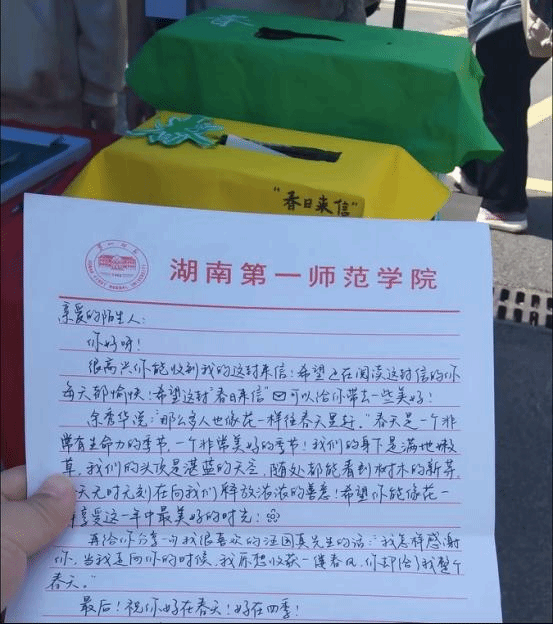 "春日来信"
湖南第一师范学院
亲爱的陌生人：
你好呀！
很高兴你能收到我的这封来信！希望正在阅读这封信的你
每天都愉快！希望这封"春日来信"可以给你带去一些美好！
余秀华说："那么多人也像花一样往春天里赶。"春天是一个非
常有生命力的季节，一个非常美好的季节！我们的身下是满地嫩
草，我们的头顶是湛蓝的天空，随处都能看到树木的新芽，
天无时无刻在向我们释放浓浓的善意！希望你能像花一
享受这一年中最美好的时光！
再给你分享一句我很喜欢的汪国真先生的话："我怎样感谢
你，当我走向你的时候，我原想收获一缕春风，你却给了我整个
春天。"
最后！祝你好在春天！好在四季！